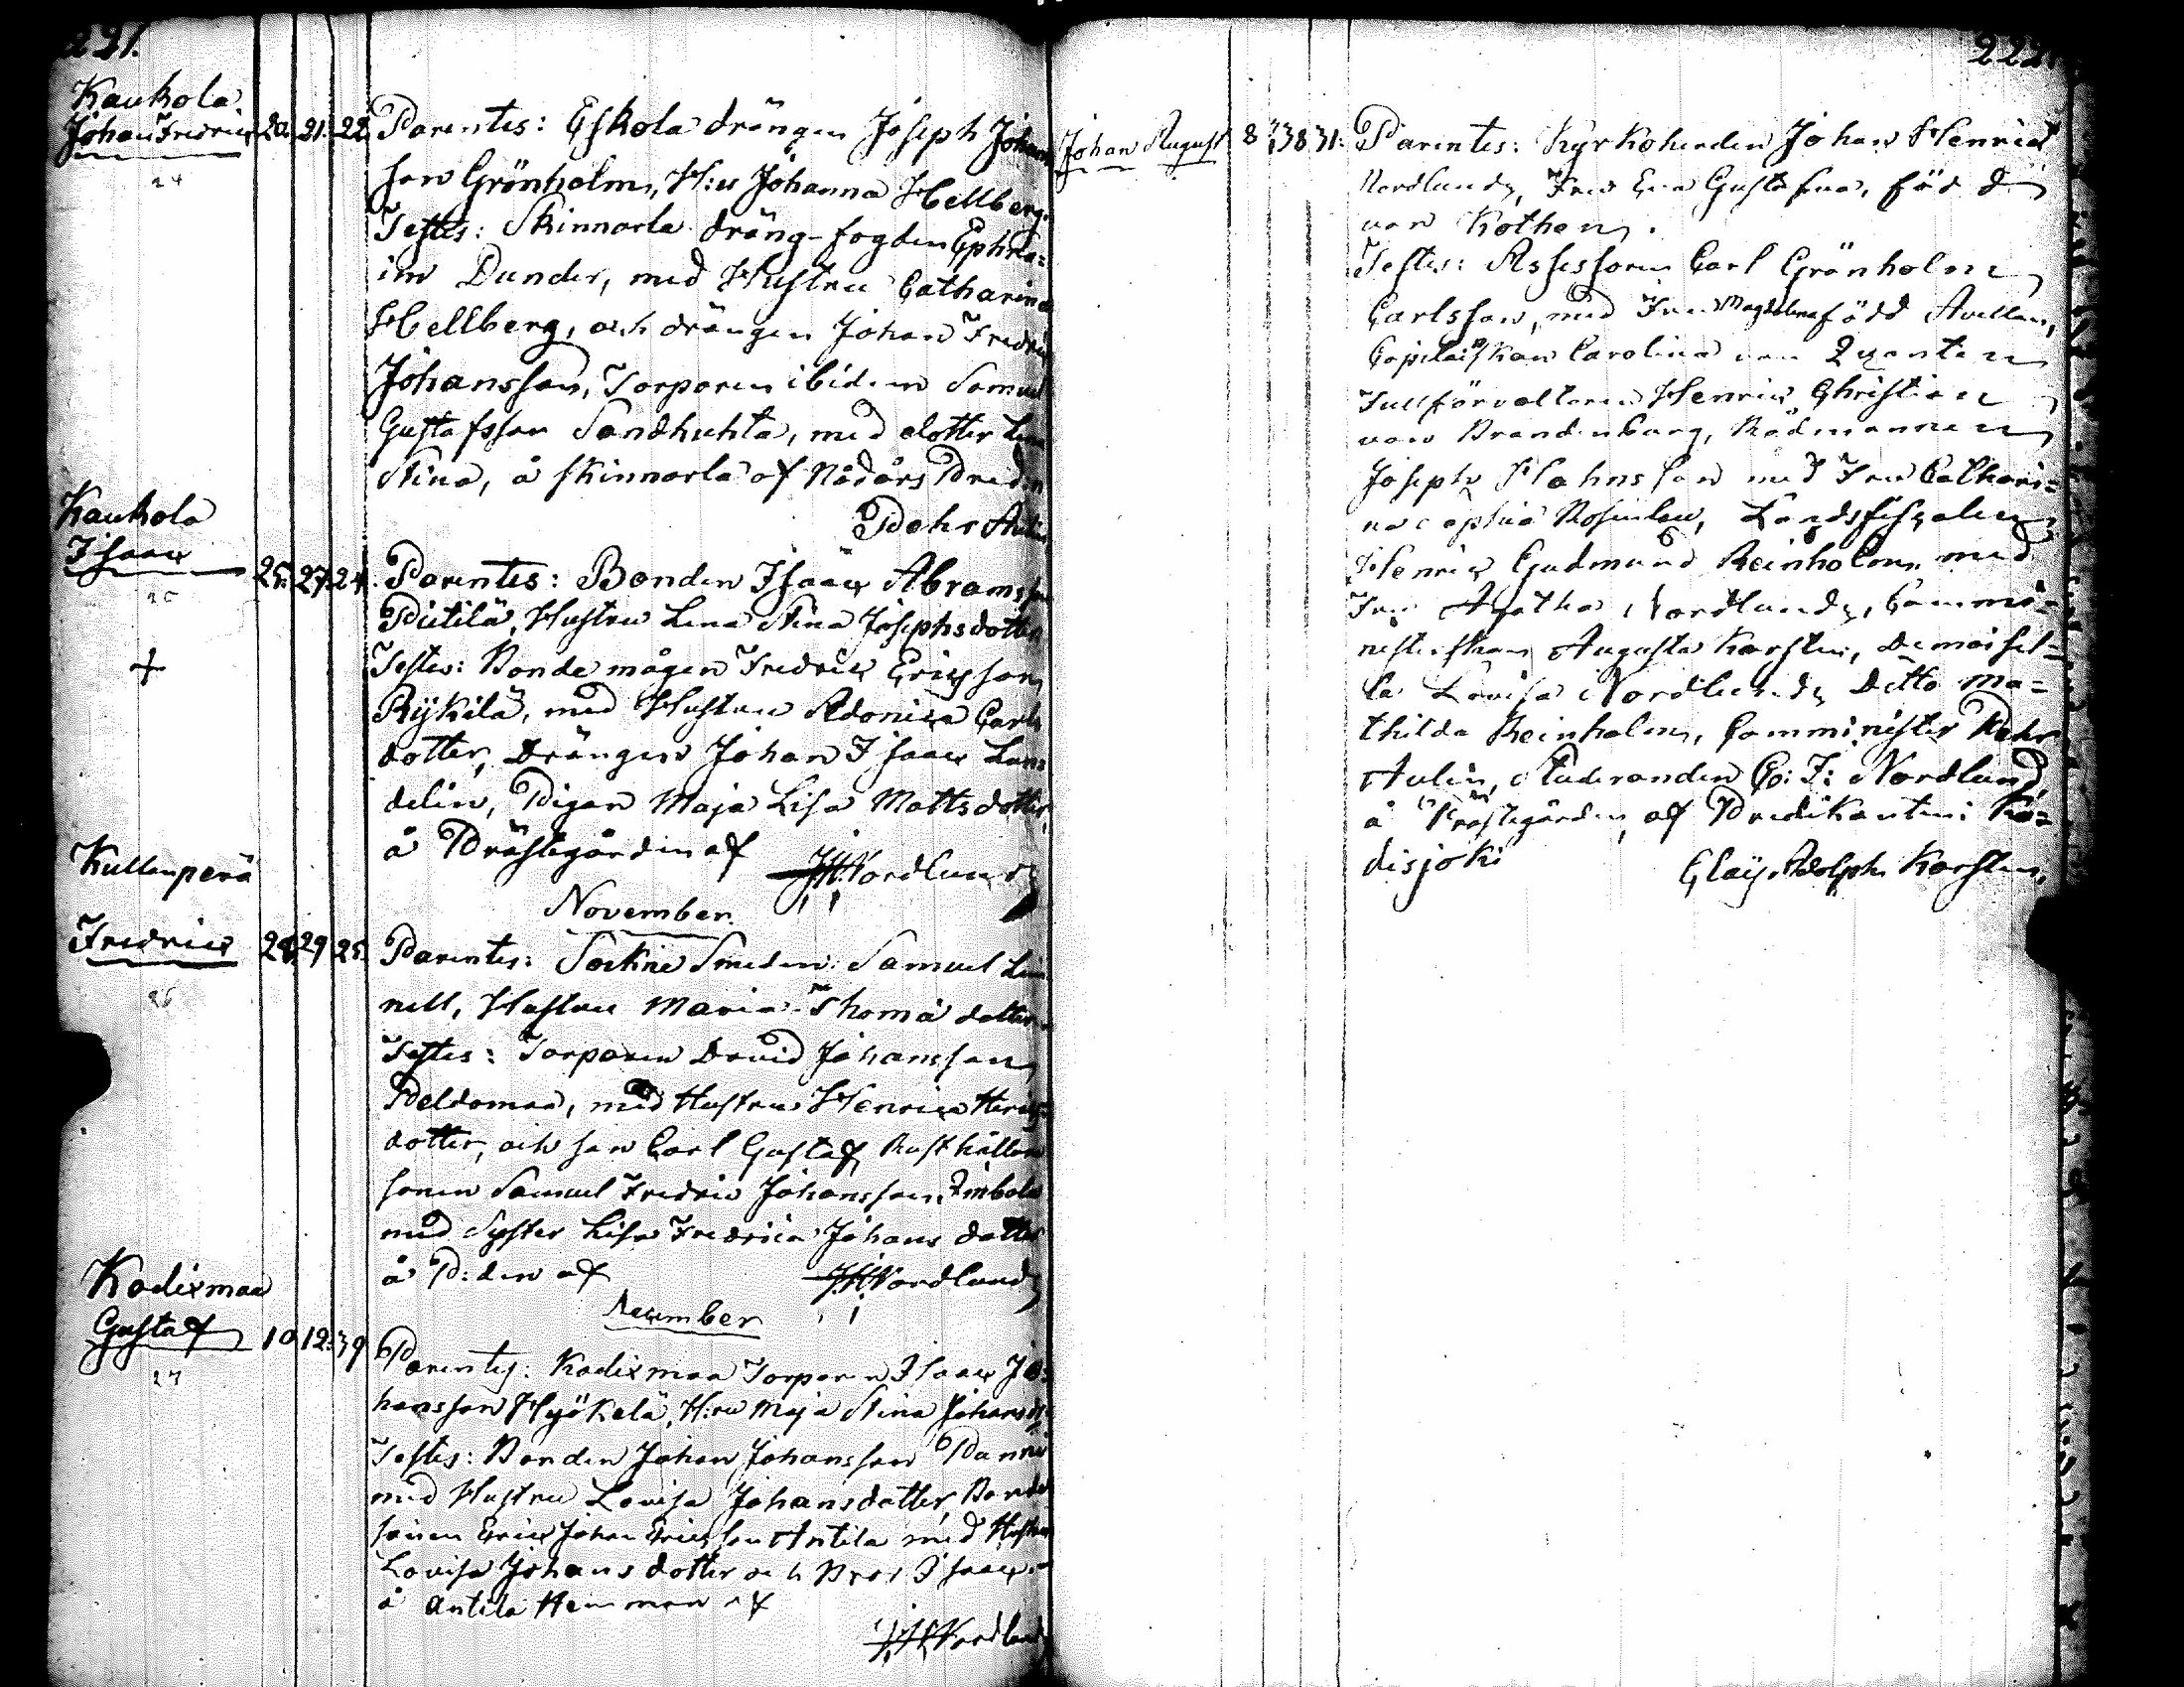 221.
Kaukola
Johan Fredric 20. 21. 22. Parentes: Eskola drängen Joseph Johans
24
son Grönholm, H:u Johanna Hellberg.
Testes: Skinnarla dräng-fogden Ephra=
im Dunder, med Hustru Catharina
Hellberg, och drängen Johan Fredric
Johansson, Torparen ibidem Samuel
Gustafsson Sandhuhta, med dotter Lena
Stina, å Skinnarla af Nådårs Pred:n
Pehr Aulin
Kaukola
Isaac 25. 27. 24. Parentes: Bonden Isaac Abramsson
Pietilä, Hustru Lena Stina Josephsdotter
Testes: Bonde mågen Fredric Ericsson
Rykilä, med Hustru Adonica Carls
dotter, Drängen Johan Isaac Lun
delin, Pigan Maja Lisa Mattsdotter,
å Prästegården af JHNordlund
November
Kullanperä
Fredric 28. 29 25. Parentes: Sockne Smeden Samuel Lin
26
nell, Hustru Maria Thomä dotter.
Testes: Torparen David Johansson
Peldomaa, med Hustru Henrica Henrics
dotter, och son Carl Gustaf, Rusthållare
sonen Samuel Fredric Johansson
med Syster Lisa Fredrica Johans dotter
å P:den af JHNordlund
December
Kodixmaa
Gustaf 10 12. 39 Parentes: Kodixmaa Torparen Isaac Jo=
27
hansson Hyökelä, H:ru Maja Stina Johansdr
Testes: Bonden Johan Johansson
med Hustru Lovisa Johansdotter, Bonde
sonen Eric Johan Ericsson Antila med Hustru
Lovisa Johans dotter och Bror Isaac
å Antila Hemman af
JHNordlund
222.
Johan August 8 31: Parentes: Kyrkoherden Johan Henric
Nordlund, Fru Eva Gustafva, född
von Kothen.
Testes: Assessoren Carl Grönholm
Carlsson, med Fru Magdalena född Avellan,
Capitaiskan Carolina von Qvanten
Tullförvaltaren Henric Christian
von Brandenburg, Rådmannen
Joseph Hahnsson med Fru Cathari=
na Sophia Rosenlew, Landsfiscalen
Henric Gudmund Reinholm med
Fru Agatha Nordlund, Commi=
nisterskan Augusta Karsten, Demoisel=
la Lovisa Nordlund, Ditto Ma=
thilda Reinholm, Comminister Pehr
Aulin, Studeranden Nordlund
å Prästegården, af Predikanten i Ko=
disjoki Claës Adolph Karsten.